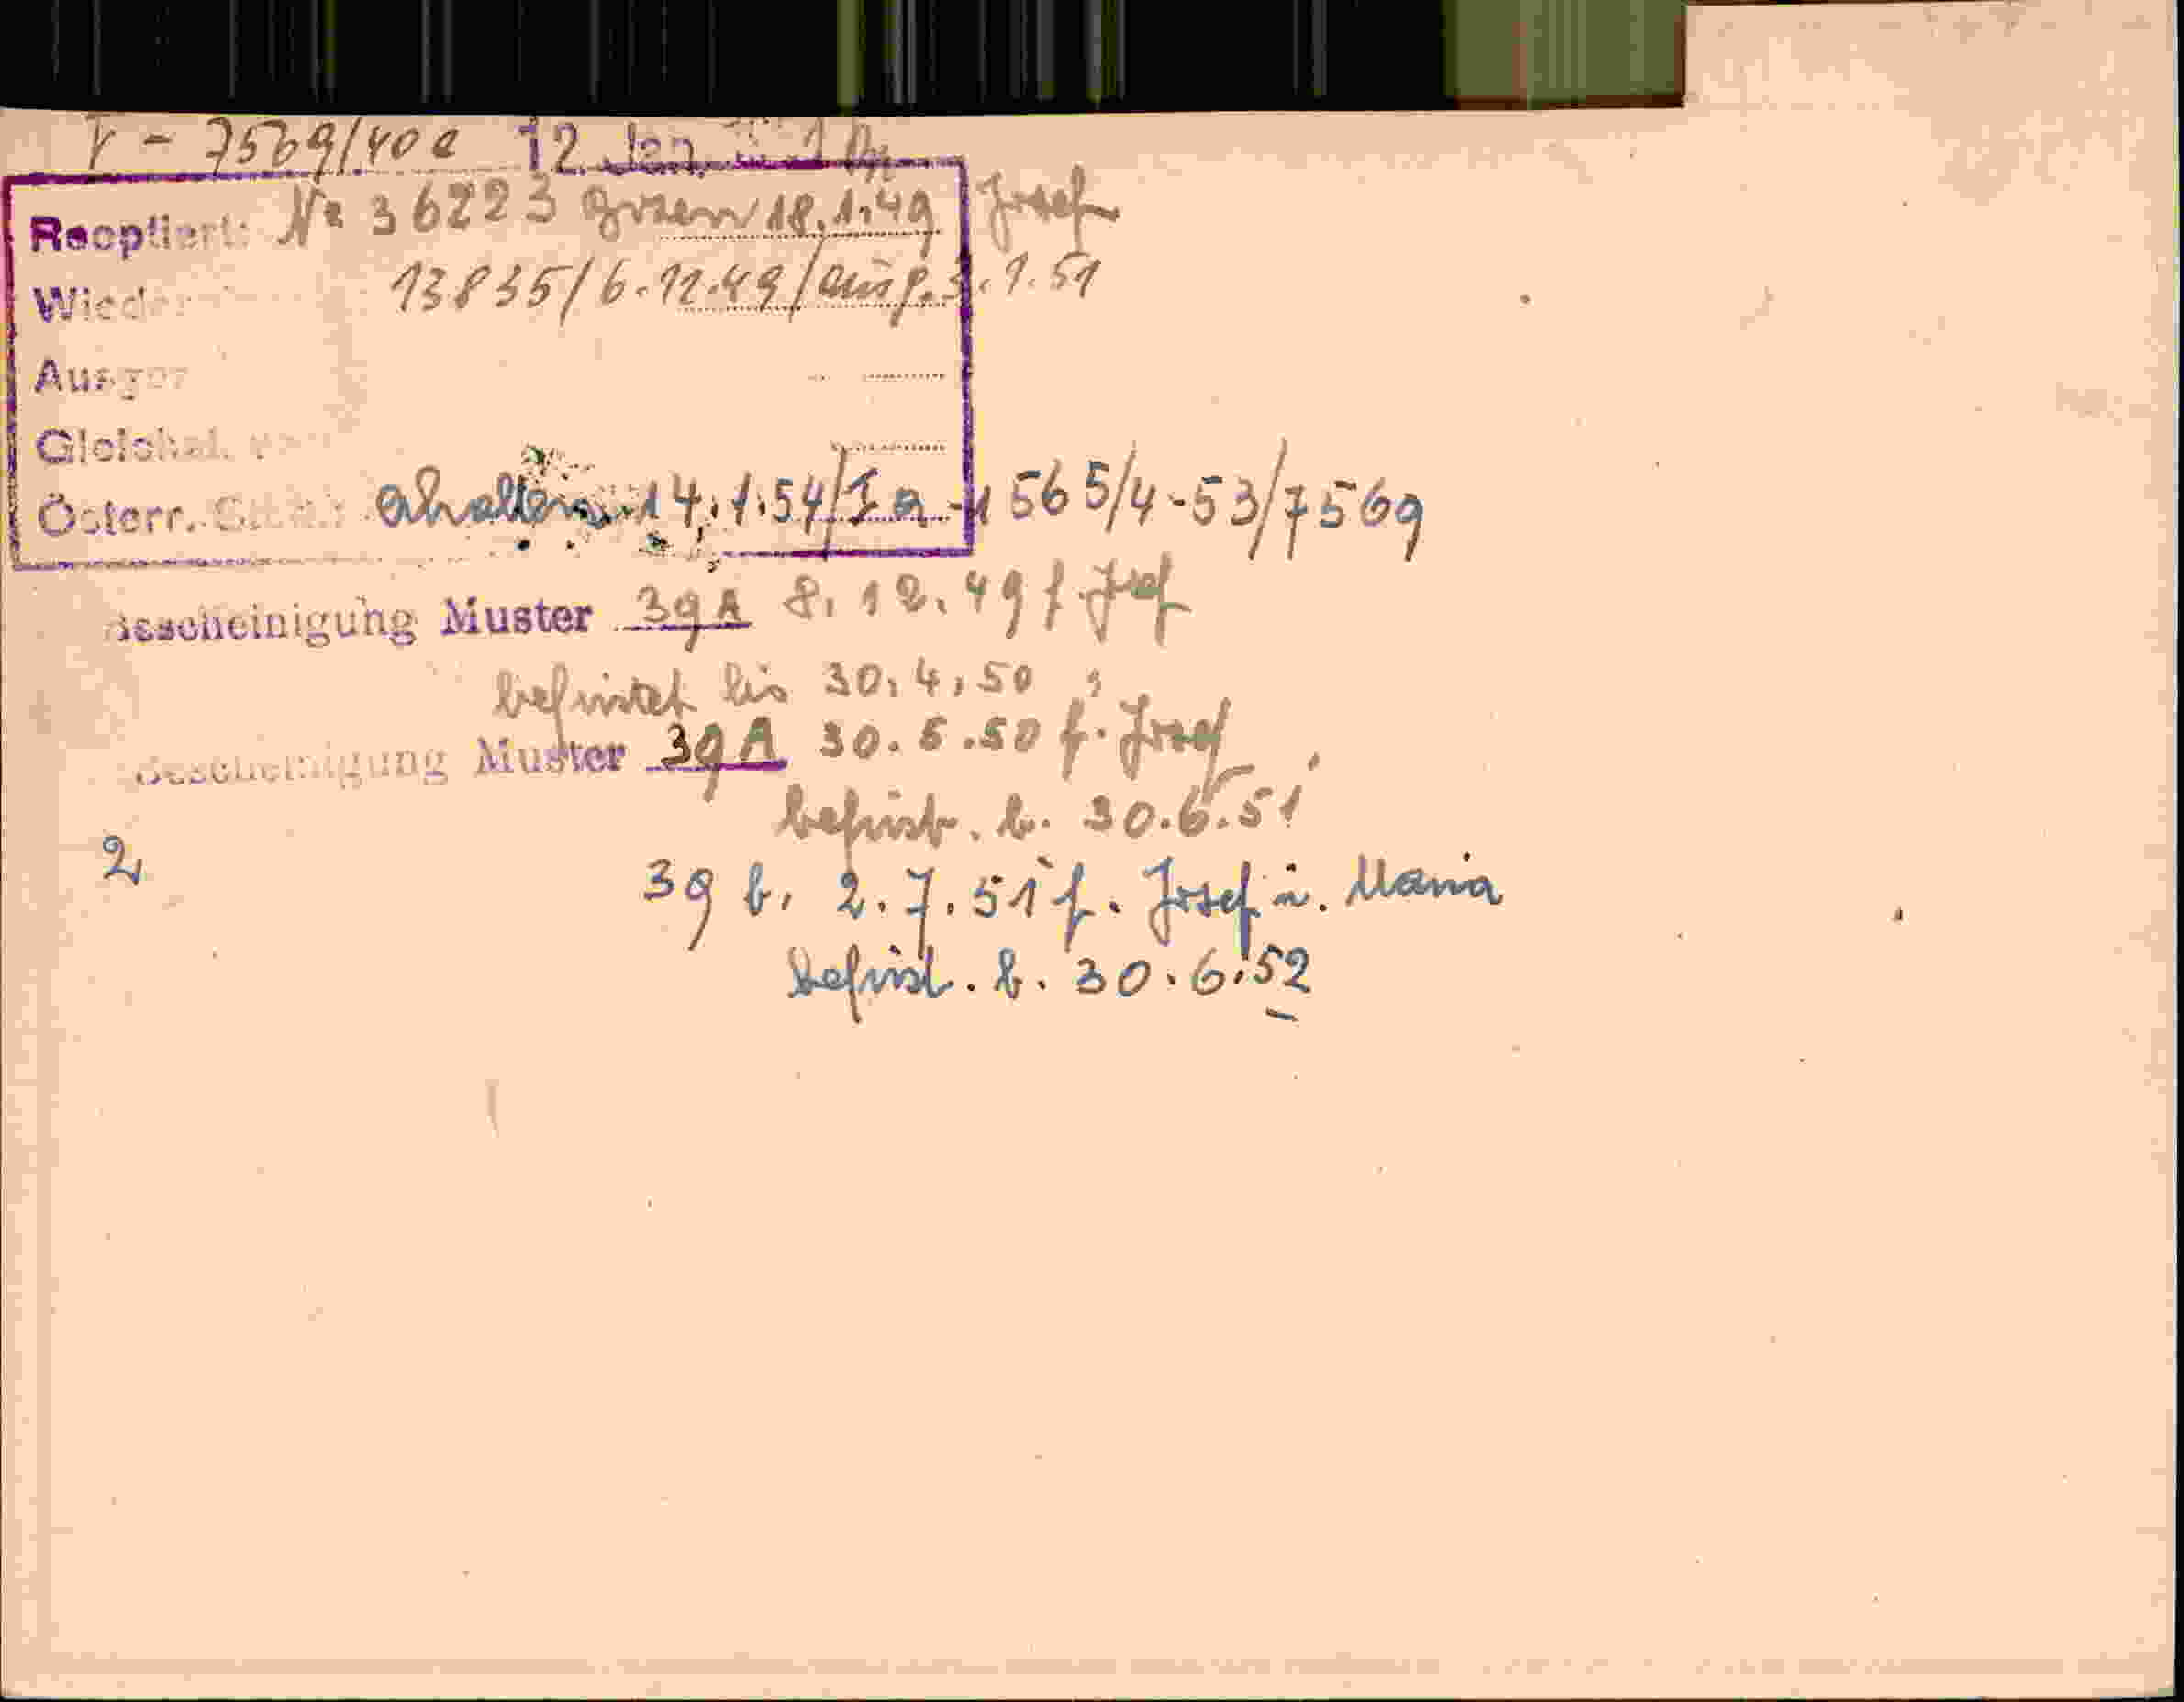 V - 7569/40 a 12. Jan.
Reoptiert: № 36223 Grsen 18.1.49 Josef
Wieder 13835/6.12.49/ausg. 3.1.51
Ausger
Gleichh.
Österr. erhalten 14.1.54/Ia-11565/4-53/7569
Bescheinigung Muster 39 A 8.12.49 f. Josef
befristet bis 30.4.50
Bescheinigung Muster 39 A 30.5.50 f. Josef
befrist. b. 30.6.51
2 39 b. 2.7.51 f. Josef u. Maria
befrist. b. 30.6.52